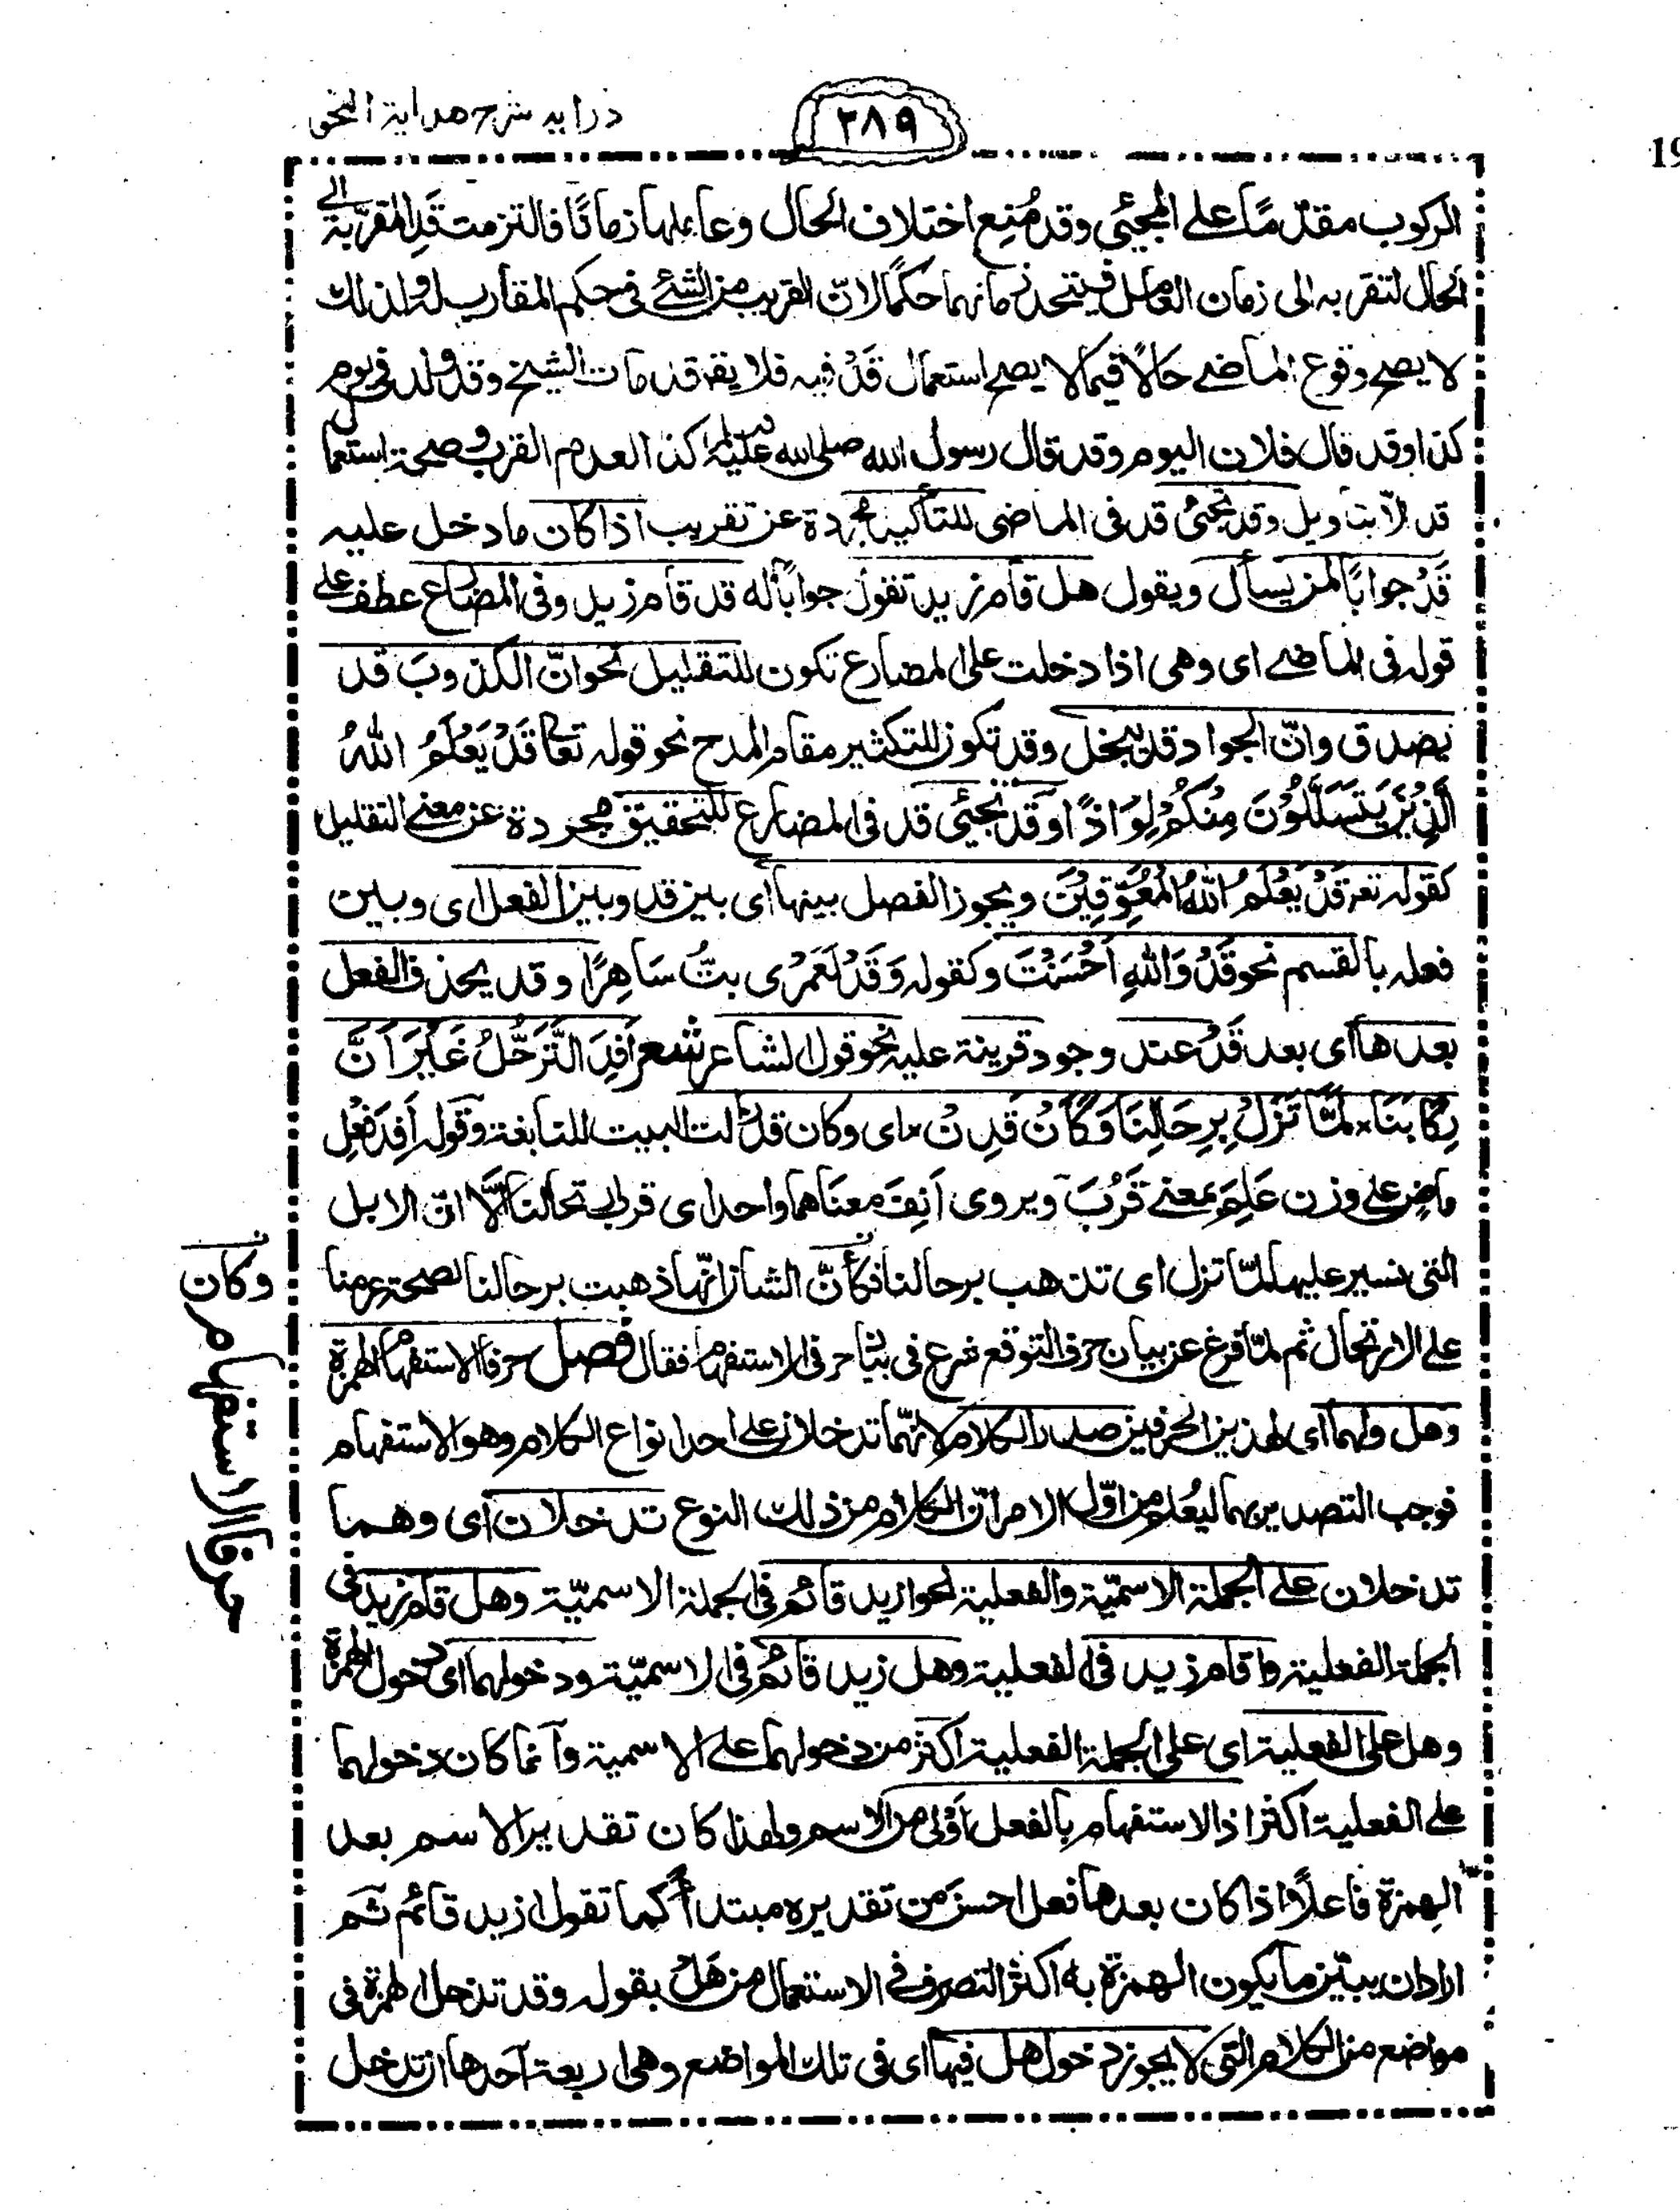 ٢٨٩
درايه شرح هداية النحو
الركوب مقدّمًا على المجيئى وقد مُنِع اختلاف الحال وعاملها زمانًا فالتزمت قَدِ المقرّبة الى
الحال لتقربه الى زمان العامل فيتحد زمانهما حكمًا لانّ القريب من الشئے فى حكم المقارب له ولذلك
لا يصح وقوع الماضے حالًا فيما لا يصح استعمال قَدْ فيه فلا يقۃ قد مات الشيخ وقد ولد فى يوم
كذا وقد قال فلان اليوم وقد قال رسول الله صلى الله عليه وسلم كذا لعدم القرب وصحة استعمال
قد الّا بتاويل وقد تجئى قد فى الماضى للتأكيد مجردة عن تقريب اذا كان ما دخل عليه
قَدْ جوابًا لمن يسأل ويقول هل قام زيد تقول جوابًا له قد قام زيد وفى المضارع عطف على
قوله فى الماضے اى وهى اذا دخلت على المضارع تكون للتقليل نحو انّ الكذوبَ قد
يصدق وانّ الجواد قد يبخل وقد تكون للتكثير مقام المدح نحو قوله تعالى قَدْ يَعْلَمُ اللهُ
الَّذِيْنَ يَتَسَلَّلُوْنَ مِنْكُمْ لِوَاذًا وقد تجيئى قد فى المضارع للتحقيق مجردة عن معنے التقليل
كقوله تعۃ قَدْ يَعْلَمُ اللهُ الْمُعَوِّقِيْنَ ويجوز الفصل بينها اى بين قد وبين الفعل اى وبين
فعله بالقسم نحو قَدْ وَاللهِ اَحْسَنْتَ وكقوله وَقَدْ لَعَمْرِى بتُّ سَاهِرًا وقد يحذف الفعل
بعدها اى بعد قَدْ عند وجود قرينة عليه نحو قول الشاعر شعر اَفِدَ التَّرَحُّلُ غَيْرَ اَنَّ
رِكَابَنَا ٭ لَمَّا تَزَلْ بِرِحَالِنَا وَكَاَنْ قَدِنْ ٭ اى وكان قد زالت البيت للنابغة وقوله اَفِدَ فعل
ماضٍ على وزن عَلِمَ بمعنے قَرُبَ ويروى اَزِفَ معناهما واحد اى قرب ارتحالنا الّا انّ الابل
التى نسير عليها لمّا تزل اى تذهب برحالنا فكأنّ الشان انّها ذهبت برحالنا لصحة عزمنا
على الارتحال ثم لمّا فرغ عن بيان حرف التوقع شرع فى بيان حرفى الاستفهام فقال فصل حرفا الاستفهام الهمزة
وهل ولهما اى لهذين الحرفين صدر الكلام لانّهما تدخلان على احد انواع الكلام وهو الاستفهام
فوجب التصدير بهما ليُعْلم من اوّل الامر انّ الكلام من ذلك النوع تدخلان اى وهما
تدخلان على الجملة الاسميّة والفعلية نحو ازيد قائم فى الجملة الاسميّة وهل قام زيد فى
الجملة الفعلية واقام زيد فى الفعلية وهل زيد قائم فى الاسميّة ودخولهما اى دخول الهمزة
وهل على الفعلية اى على الجملة الفعلية اكثر من دخولهما على الاسمية وانما كان دخولهما
على الفعلية اكثر اذ الاستفهام بالفعل اَوْلى من الاسم ولهذا كان تقدير الاسم بعد
الهمزة فاعلًا اذا كان بعدها فعل احسن من تقديره مبتدأ كما تقول ازيد قائم ثم
اراد ان يبيّن ما يكون الهمزة به اكثر التصرف فى الاستعمال من هَلْ بقوله وقد تدخل الهمزة فى
مواضع من الكلام التى لا يجوز دخول هل فيها اى فى تلك المواضع وهى اربعة احدها ان تدخل
وكان
حرفا الاستفهام
19